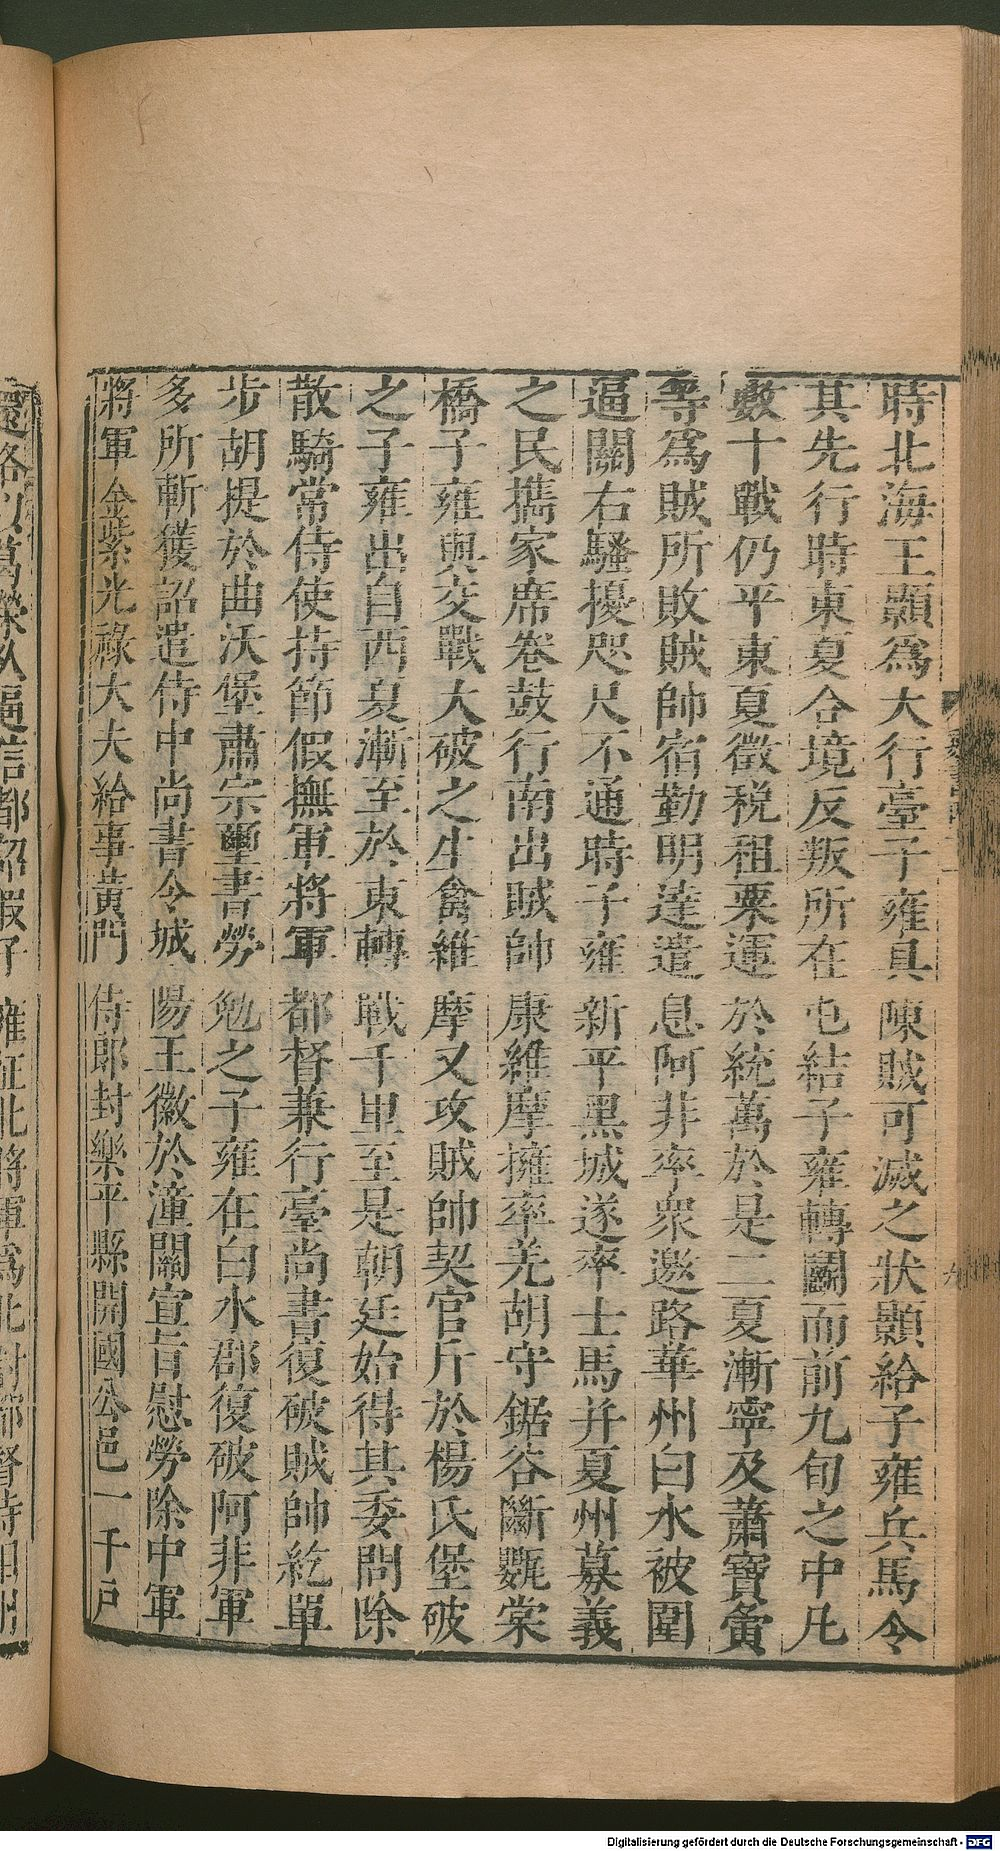 時北海王顥爲大行臺子雍具陳賊可滅之狀顥給子雍兵馬令
其先行時東夏合境反叛所在屯結子雍轉鬭而前九旬之中凡
數十戰仍平東夏徵稅租粟運於統萬於是二夏漸寧及蕭寶夤
等爲賊所敗賊帥宿勤明達遣息阿非率衆邀路華州白水被圍
逼關右騷擾咫尺不通時子雍新平黑城遂率士馬并夏州募義
之民攜家席卷鼓行南出賊帥康維摩擁率羌胡守鋸谷斷甕棠
橋子雍與交戰大破之生禽維摩又攻賊帥契官斤於楊氏堡破
之子雍出自西夏漸至於東轉戰千里至是朝廷始得其委問除
散騎常侍使持節假撫軍將軍都督兼行臺尚書復破賊帥紇單
步胡提於曲沃堡肅宗璽書勞勉之子雍在白水郡復破阿非軍
多所斬獲詔遣侍中尚書令城陽王徽於潼關宣旨慰勞除中軍
將軍金紫光祿大夫給事黃門侍郎封樂平縣開國公邑一千戶
Digitalisierung gefördert durch die Deutsche Forschungsgemeinschaft - DFG